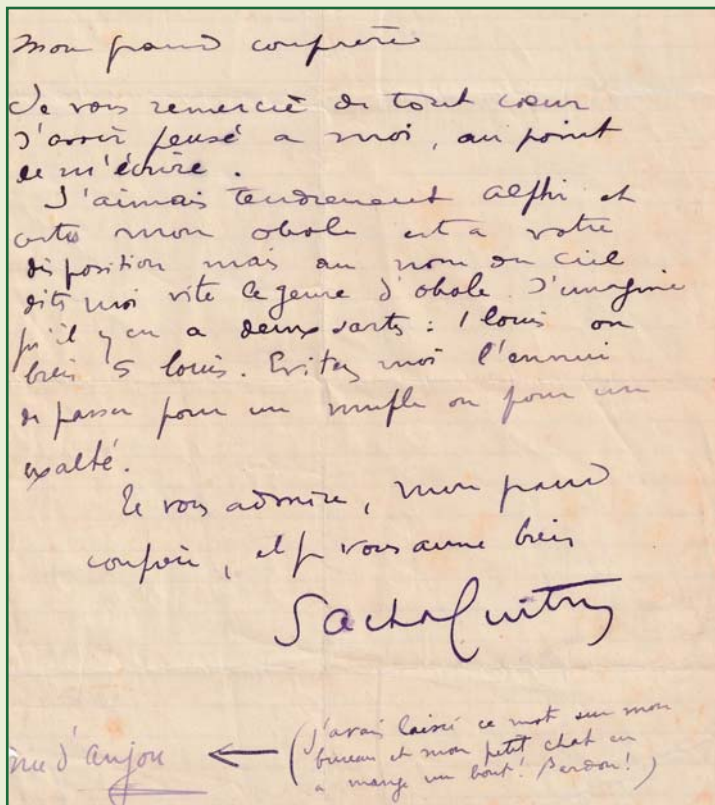 Mon grand confrère
Je vous remercie de tout cœur
d'avoir pensé a moi, au point
de m'écrire.
J'aimais tendrement et
certes mon obole est a votre
disposition mais au nom du ciel
dites moi vite le genre d'obole. J'imagine
qu'il y en a deux sortes : 1 louis ou
bien 5 louis. Evitez moi l'ennui
de passer pour un mufle ou pour un
exalté.
Je vous admire, mon grand
confrère, et je vous aime bien
Sacha Guitry
(j'avais laissé ce mot sur mon
bureau et mon petit chat en
a mangé un bout! Pardon!)
rue d'Anjou ←